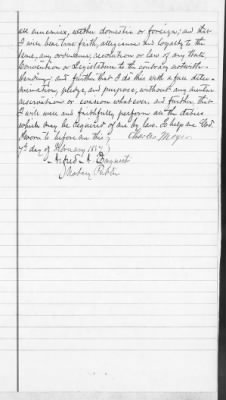 all enemies, wether domestic or foreign; and that
I will bear true faith, allegiance and loyalty to the
same, any ordinance, resolution or law of any State
Convention or Legislature to the contrary notwith-
standing; and further that I do this with a full deter-
mination, pledge, and purpose, without any mental
reservations or evasion whatsoever. and further that
I will well and faithfully perform all the duties
which may be required of me by law. So help me God.
Sworn to before me this } Charles Moyer
7th day of February 186
Alfred A.
Notary Public